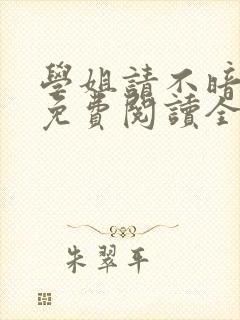 學姐請不暗
免費閱讀全
朱翠平